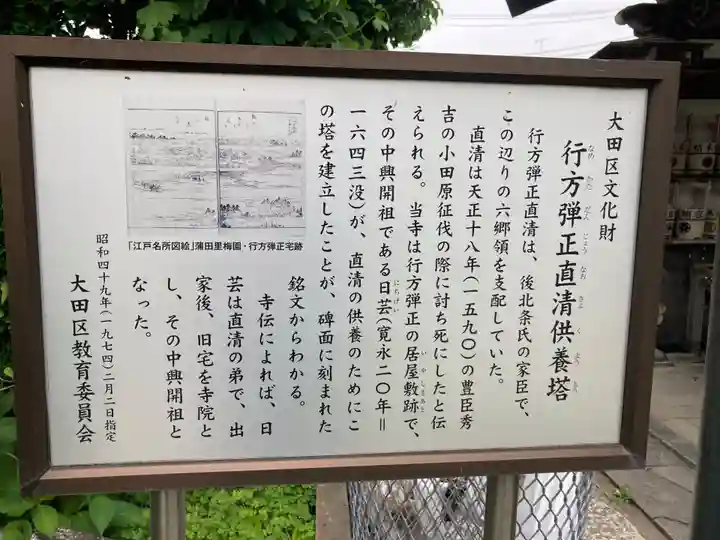 大田区文化財
行方弾正直清供養塔
なめかただんじょうなおきよくようとう
行方弾正直清は、後北条氏の家臣で、
この辺りの六郷領を支配していた。
直清は天正十八年(一五九〇)の豊臣秀
吉の小田原征伐の際に討ち死にしたと伝
えられる。当寺は行方弾正の居屋敷跡で、
いやしきあと
その中興開祖である日芸(寛永二〇年=
にちげい
一六四三没)が、直清の供養のためにこ
の塔を建立したことが、碑面に刻まれた
銘文からわかる。
寺伝によれば、日
芸は直清の弟で、出
家後、旧宅を寺院と
し、その中興開祖と
なった。
「江戸名所図絵」蒲田里梅園・行方弾正宅跡
昭和四十九年(一九七四)二月二日指定
大田区教育委員会